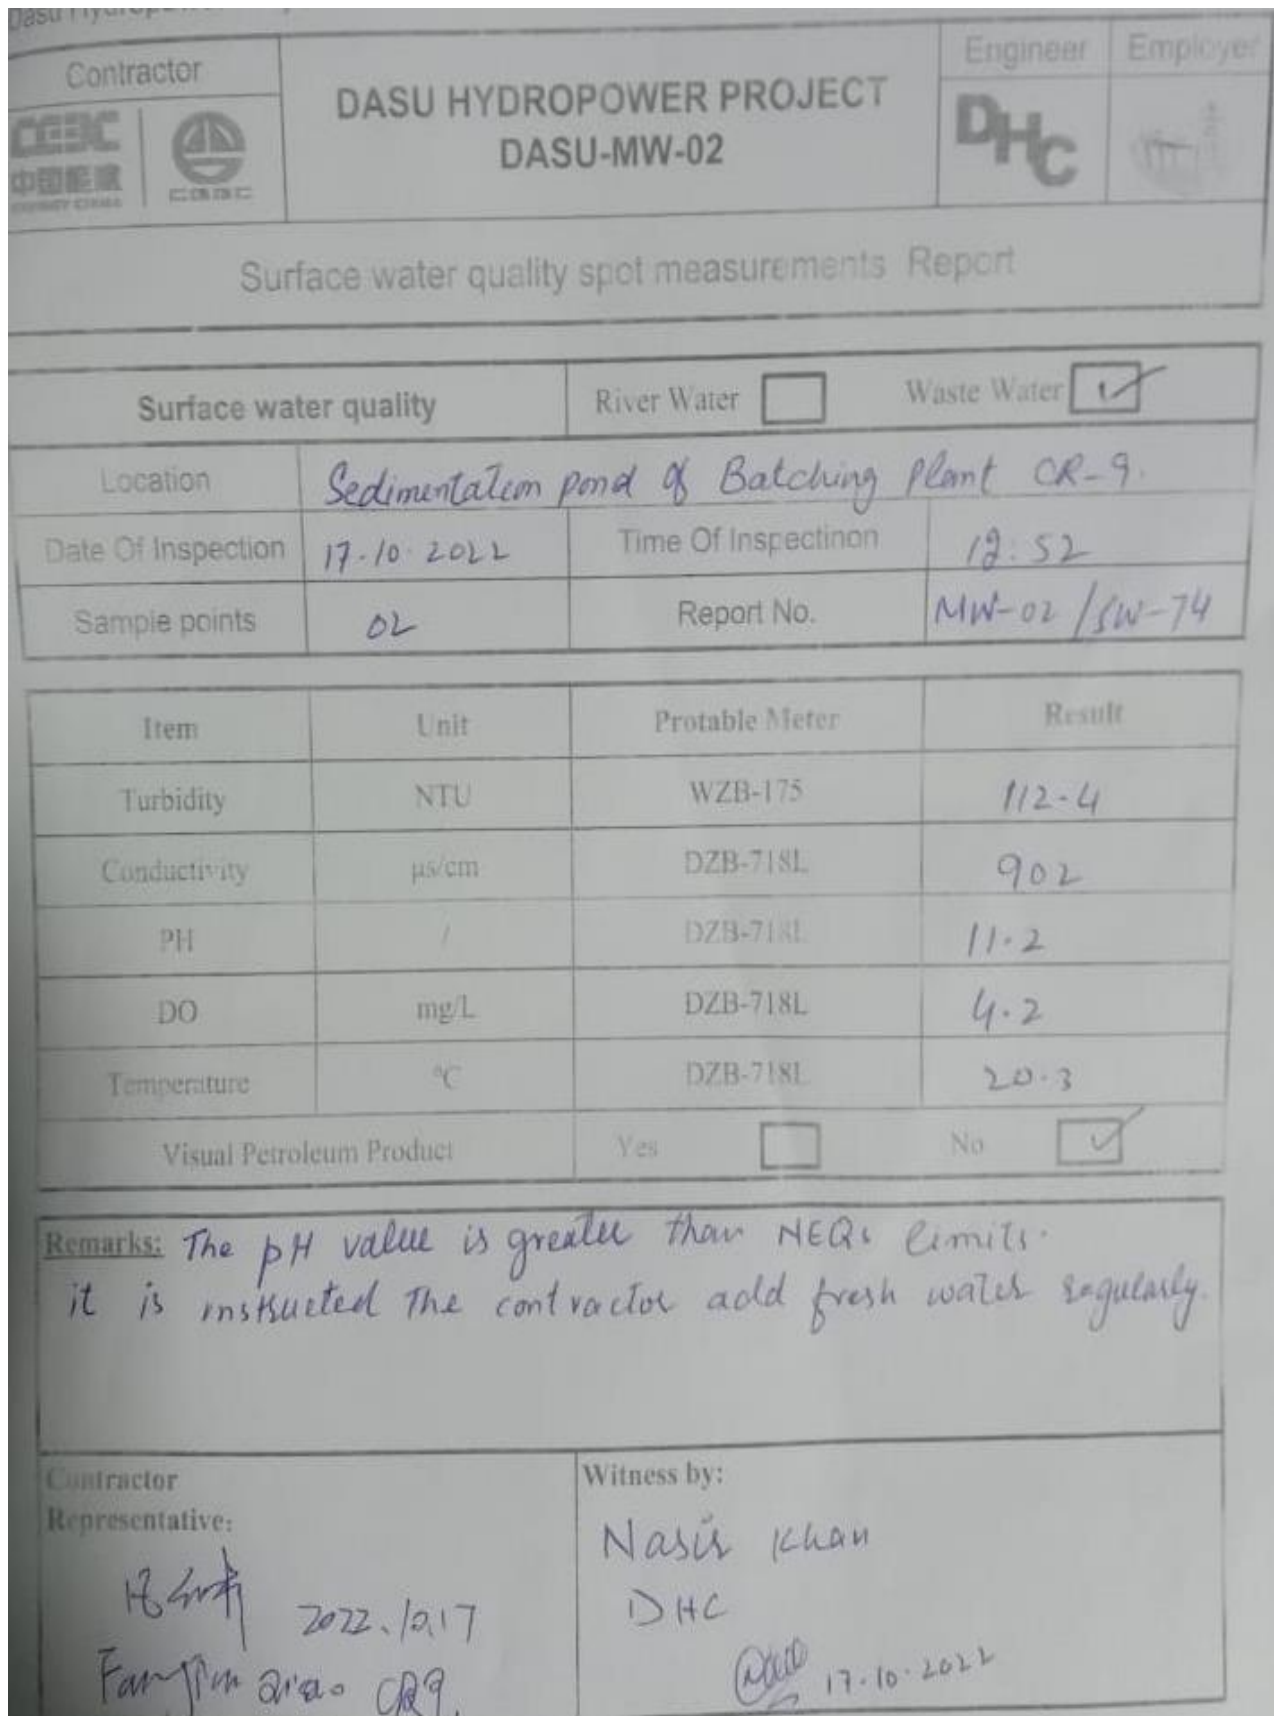 Dasu Hydropower
Contractor
Engineer
Employer
DASU HYDROPOWER PROJECT
DASU-MW-02
CGGC
中国能建
ENERGY CHINA
CGGC
DHC
Surface water quality spot measurements Report
Surface water quality
River Water
Waste Water
Location
Sedimentation pond of Batching Plant CR-9.
Date Of Inspection
17.10.2022
Time Of Inspectinon
12:52
Sample points
02
Report No.
MW-02/SW-74
Item
Unit
Protable Meter
Result
Turbidity
NTU
WZB-175
112.4
Conductivity
µs/cm
DZB-718L
902
PH
/
DZB-718L
11.2
DO
mg/L
DZB-718L
4.2
Temperature
°C
DZB-718L
20.3
Visual Petroleum Product
Yes
No
Remarks: The pH value is greater than NEQs limits.
it is instructed The contractor add fresh water regularly.
Contractor
Representative:
2022.10.17
CR9.
Witness by:
Nasir Khan
DHC
17.10.2022